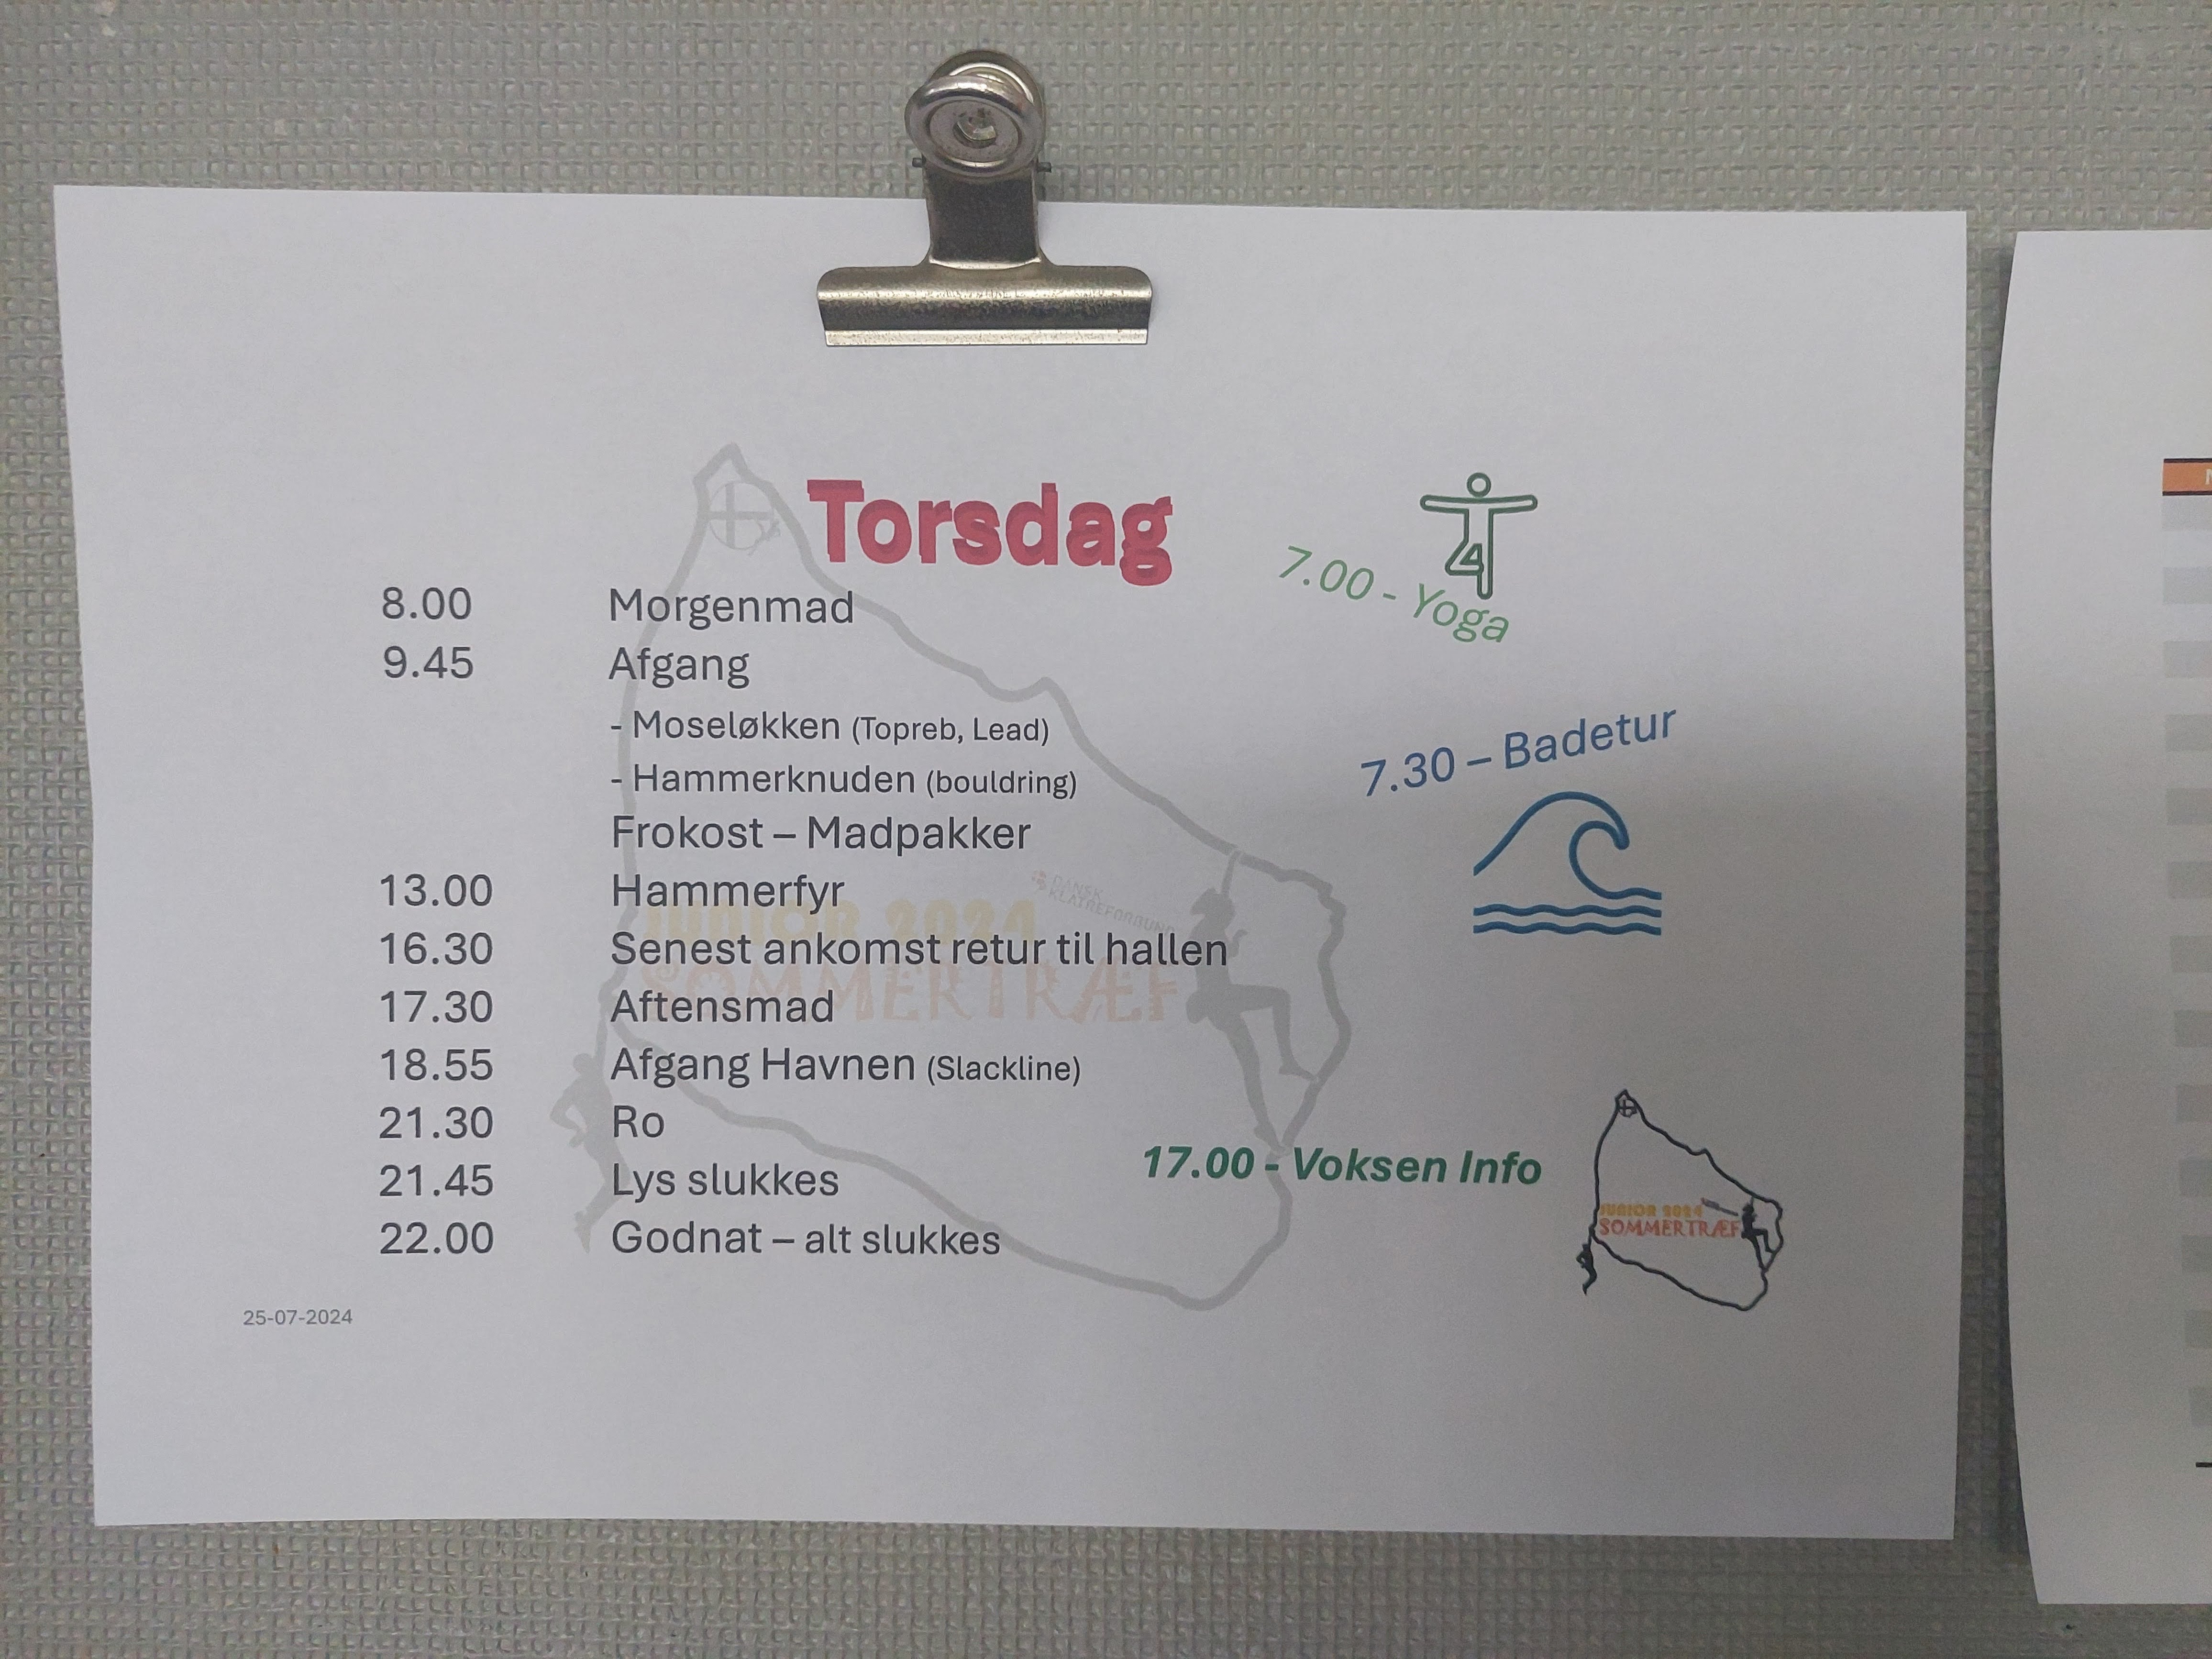 Torsdag
7.00 - Yoga
8.00 Morgenmad
9.45 Afgang
- Moseløkken (Topreb, Lead)
7.30 – Badetur
- Hammerknuden (bouldring)
Frokost – Madpakker
13.00 Hammerfyr
DANSK
KLATREFORBUND
JUNIOR 2024
16.30 Senest ankomst retur til hallen
SOMMERTRÆF
17.30 Aftensmad
18.55 Afgang Havnen (Slackline)
21.30 Ro
17.00 - Voksen Info
21.45 Lys slukkes
JUNIOR 2024
SOMMERTRÆF
22.00 Godnat – alt slukkes
25-07-2024